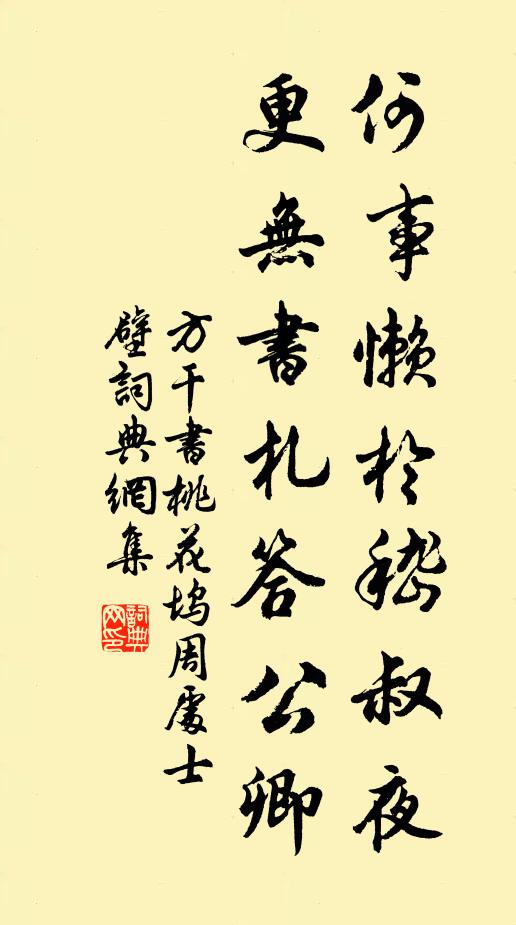 何事懶於嵇叔夜
更無書札答公卿
方干書桃花塢周處士
壁詞典網集
詞典
網印